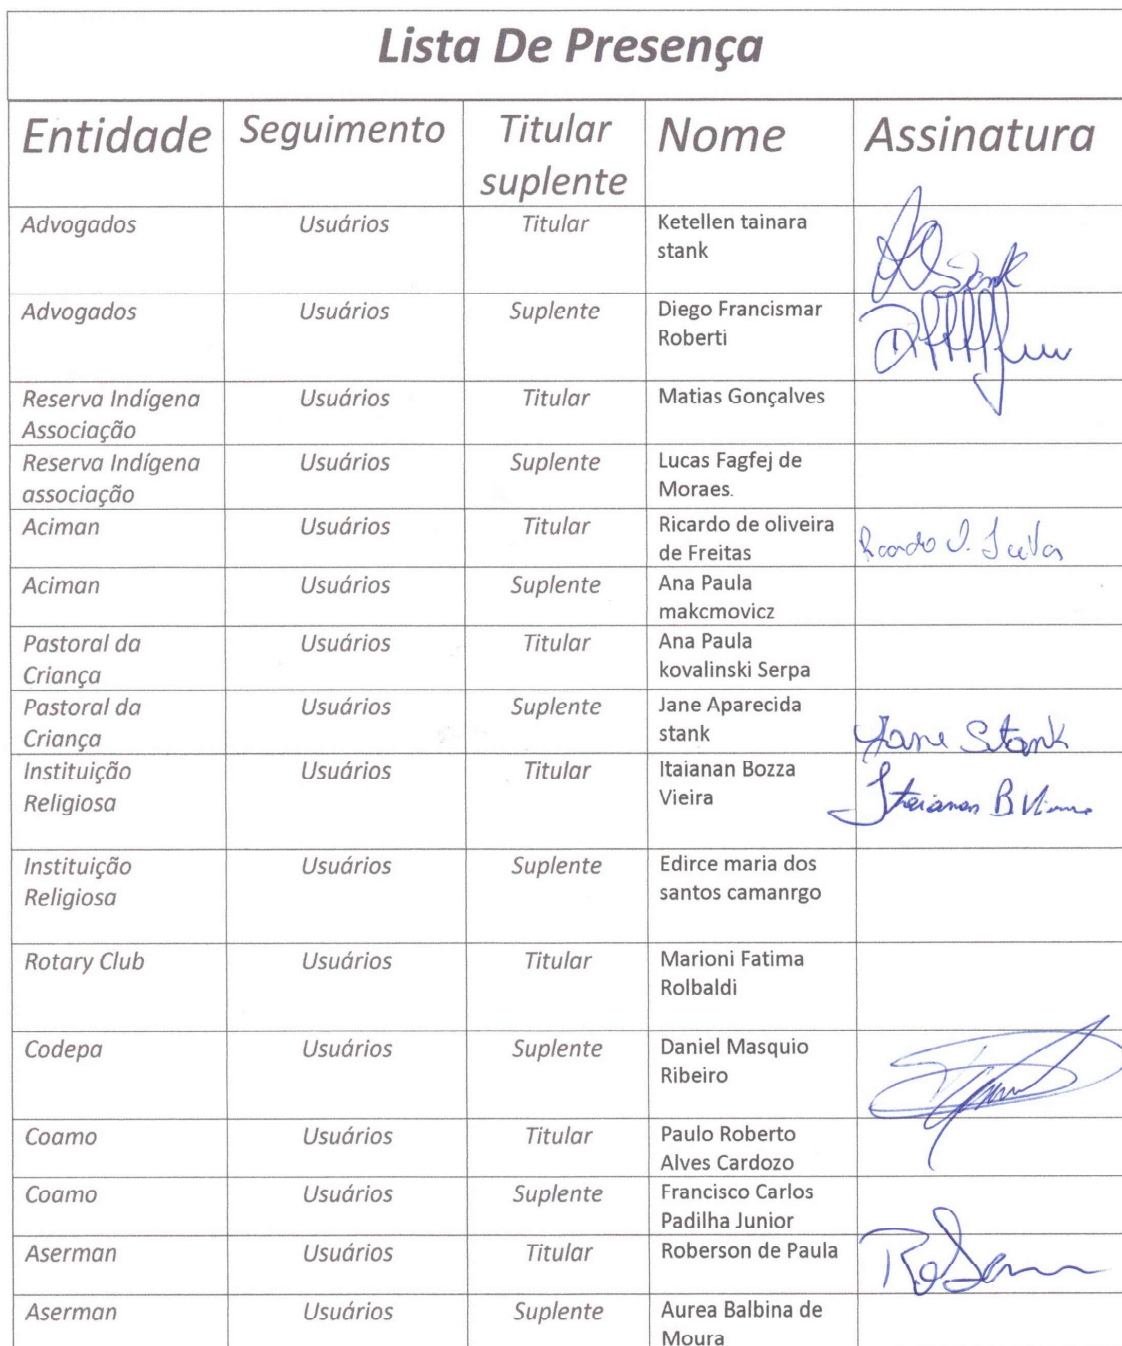 Lista De Presença
Entidade Seguimento Titular Nome Assinatura
suplente
Advogados Usuários Titular Ketellen tainara
stank
Stank
Advogados Usuários Suplente Diego Francismar
Roberti
Reserva Indígena Usuários Titular Matias Gonçalves
Associação
Reserva Indígena Usuários Suplente Lucas Fagfej de
associação Moraes.
Aciman Usuários Titular Ricardo de oliveira
de Freitas
Ricardo O.
Aciman Usuários Suplente Ana Paula
makcmovicz
Pastoral da Usuários Titular Ana Paula
Criança kovalinski Serpa
Pastoral da Usuários Suplente Jane Aparecida
Criança stank
Jane Stank
Instituição Usuários Titular Itaianan Bozza
Religiosa Vieira
Itaianan B Vieira
Instituição Usuários Suplente Edirce maria dos
Religiosa santos camanrgo
Rotary Club Usuários Titular Marioni Fatima
Rolbaldi
Codepa Usuários Suplente Daniel Masquio
Ribeiro
Coamo Usuários Titular Paulo Roberto
Alves Cardozo
Coamo Usuários Suplente Francisco Carlos
Padilha Junior
Aserman Usuários Titular Roberson de Paula
Aserman Usuários Suplente Aurea Balbina de
Moura